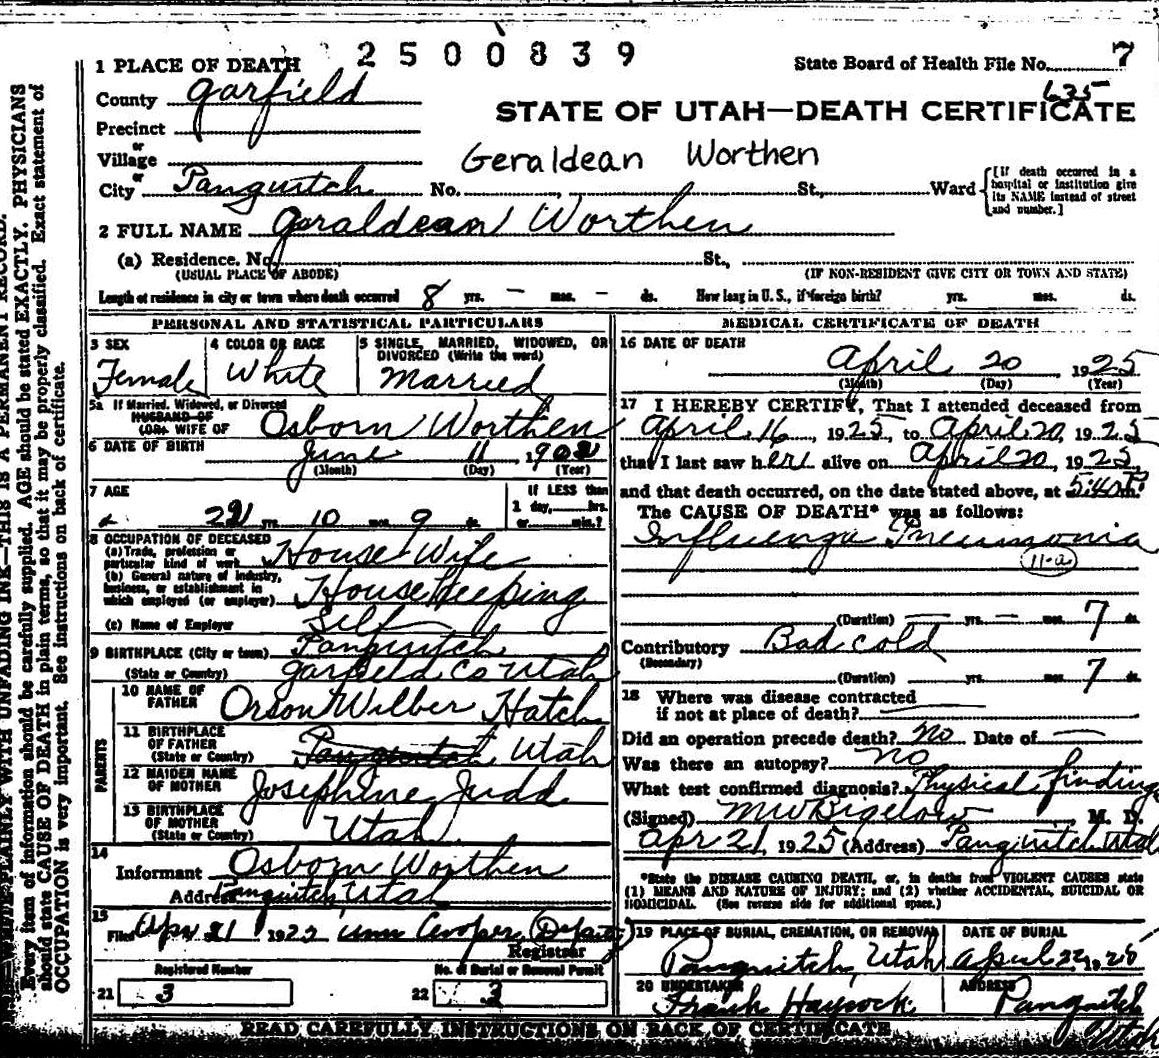 2500839
1 PLACE OF DEATH
State Board of Health File No. 7
635
County Garfield
STATE OF UTAH—DEATH CERTIFICATE
Precinct
or
Village
Geraldean Worthen
or
City Panguitch No. St., Ward
[If death occurred in a hospital or institution give its NAME instead of street and number.]
2 FULL NAME Geraldean Worthen
(a) Residence. No. St.,
(USUAL PLACE OF ABODE) (IF NON-RESIDENT GIVE CITY OR TOWN AND STATE)
Length of residence in city or town where death occurred 8 yrs. – mos. – ds. How long in U. S., if foreign birth? yrs. mos. ds.
PERSONAL AND STATISTICAL PARTICULARS
3 SEX Female
4 COLOR OR RACE White
5 SINGLE, MARRIED, WIDOWED, OR DIVORCED (Write the word) Married
5a If Married, Widowed, or Divorced
HUSBAND OF
(OR) WIFE OF Osborn Worthen
6 DATE OF BIRTH June 11 190
(Month) (Day) (Year)
7 AGE yrs. 10 mos. 9 ds.
If LESS than 1 day, hrs. or min.?
8 OCCUPATION OF DECEASED
(a) Trade, profession or particular kind of work House Wife
(b) General nature of industry, business, or establishment in which employed (or employer) House Keeping
(c) Name of Employer Self
9 BIRTHPLACE (City or town) Panguitch
(State or Country) Garfield Co Utah
PARENTS
10 NAME OF FATHER Orson Wilber Hatch
11 BIRTHPLACE OF FATHER (State or Country) Panguitch Utah
12 MAIDEN NAME OF MOTHER Josephine Judd
13 BIRTHPLACE OF MOTHER (State or Country) Utah
14
Informant Osborn Worthen
Address Panguitch, Utah
15
Filed Apr 21 192 Cooper (Deputy)
Registrar
Registered Number
21 3
No. of Burial or Removal Permit
22 3
MEDICAL CERTIFICATE OF DEATH
16 DATE OF DEATH
April 20 1925
(Month) (Day) (Year)
17 I HEREBY CERTIFY, That I attended deceased from
April 16, 1925, to April 20, 1925
that I last saw her alive on April 20, 1925,
and that death occurred, on the date stated above, at m.
The CAUSE OF DEATH* was as follows:
Influenza Pneumonia
11-a
(Duration) — yrs. — mos. 7 ds.
Contributory Bad cold
(Secondary)
(Duration) yrs. mos. 7 ds.
18 Where was disease contracted
if not at place of death? —
Did an operation precede death? No Date of —
Was there an autopsy? no
What test confirmed diagnosis? Physical findings
(Signed) M W Bigelow M. D.
Apr 21, 1925 (Address) Panguitch Utah
*State the DISEASE CAUSING DEATH, or, in deaths from VIOLENT CAUSES state
(1) MEANS AND NATURE OF INJURY; and (2) whether ACCIDENTAL, SUICIDAL OR
HOMICIDAL. (See reverse side for additional space.)
19 PLACE OF BURIAL, CREMATION, OR REMOVAL Panguitch, Utah
DATE OF BURIAL April 22, 1925
20 UNDERTAKER Frank Haycock
ADDRESS Panguitch Utah
READ CAREFULLY INSTRUCTIONS ON BACK OF CERTIFICATE
WRITE PLAINLY WITH UNFADING INK—THIS IS A PERMANENT RECORD.
Every item of information should be carefully supplied. AGE should be stated EXACTLY. PHYSICIANS
should state CAUSE OF DEATH in plain terms, so that it may be properly classified. Exact statement of
OCCUPATION is very important. See instructions on back of certificate.